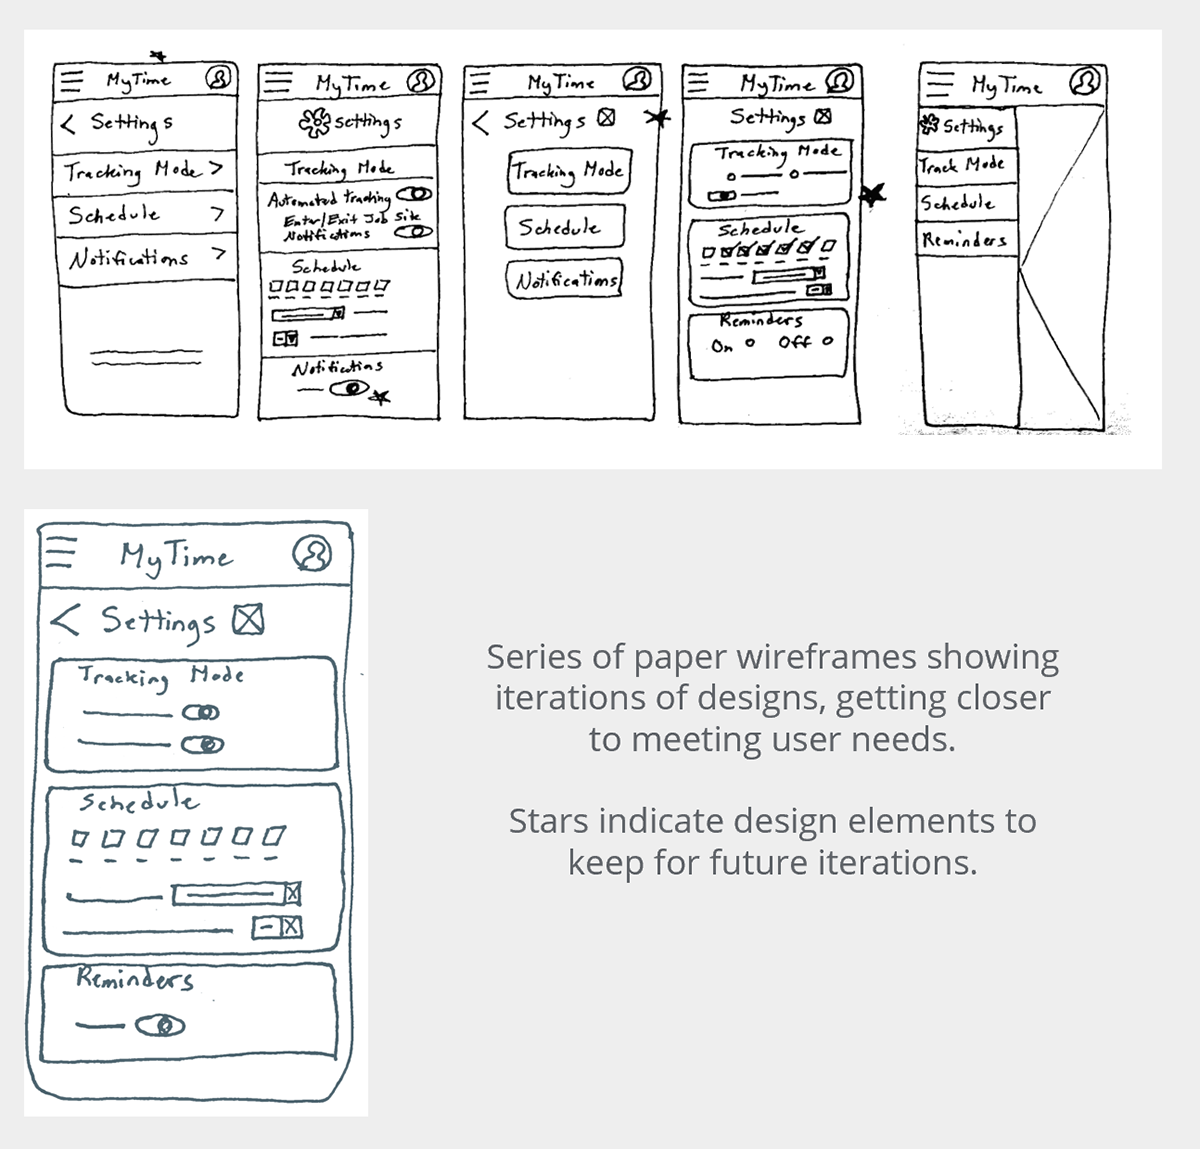 MyTime
< Settings
Tracking Mode >
Schedule >
Notifications >
MyTime
Settings
Tracking Mode
Automated tracking
Enter/Exit Job Site
Notifications
Schedule
Notifications
MyTime
< Settings
Tracking Mode
Schedule
Notifications
MyTime
Settings
Tracking Mode
Schedule
Reminders
On Off
MyTime
Settings
Track Mode
Schedule
Reminders
MyTime
< Settings
Tracking Mode
Schedule
Reminders
Series of paper wireframes showing
iterations of designs, getting closer
to meeting user needs.
Stars indicate design elements to
keep for future iterations.